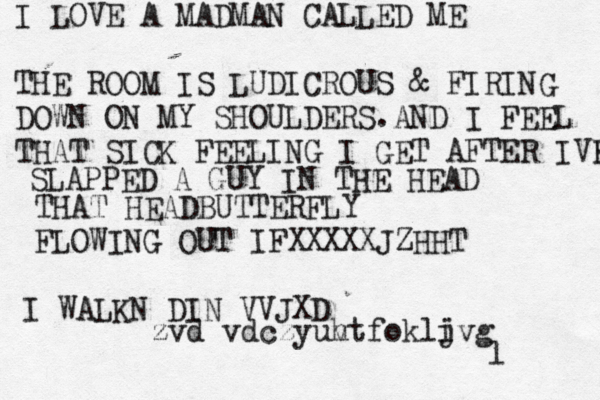 I LOVE A MADMAN CALLED ME
THE ROOM IS LUDICROUS & FIRING
DOWN ON MY SHOULDERS.AND I FEEL
THAT SICK FEELING I GET AFTER IVE
SLAPPED A GUY IN THE HEAD
THAT HEADBUTTERFLY
FLOWING OUT IFXXXXXJZHHT
I WALKN DIN VVJXD
zvd vdczyuhtfokljvg
l